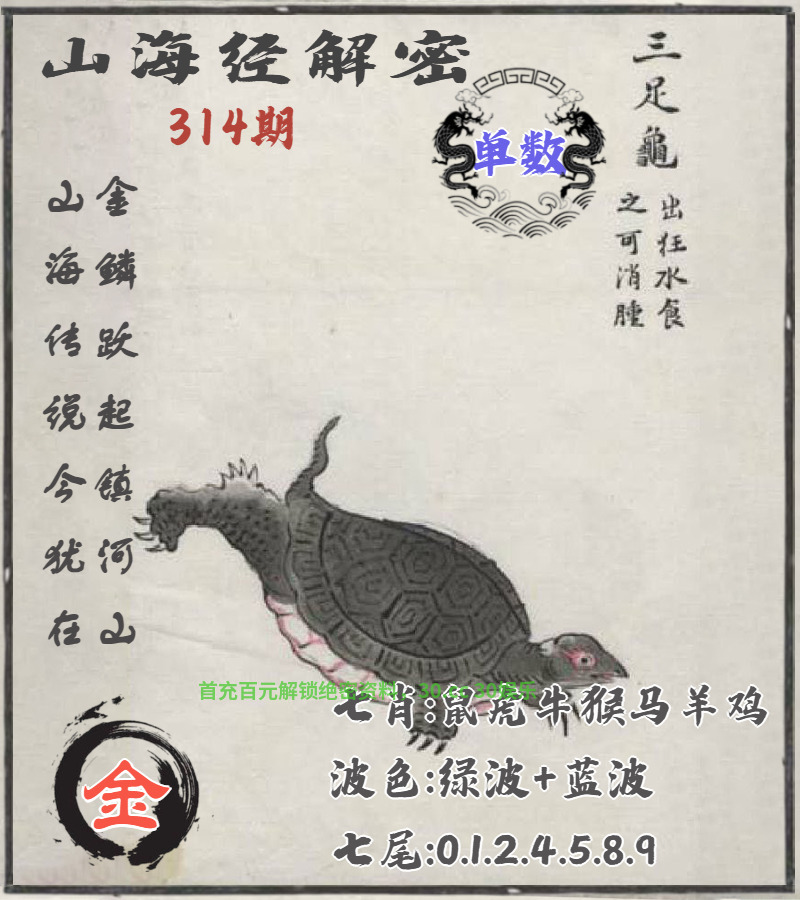 山海经解密
314期
单数
三足龜
出狂水食
之可消腫
金鳞跃起镇河山
山海传说今犹在
首充百元解锁绝密资料：30.cc 30娱乐
七肖:鼠虎牛猴马羊鸡
波色:绿波+蓝波
七尾:0.1.2.4.5.8.9
金